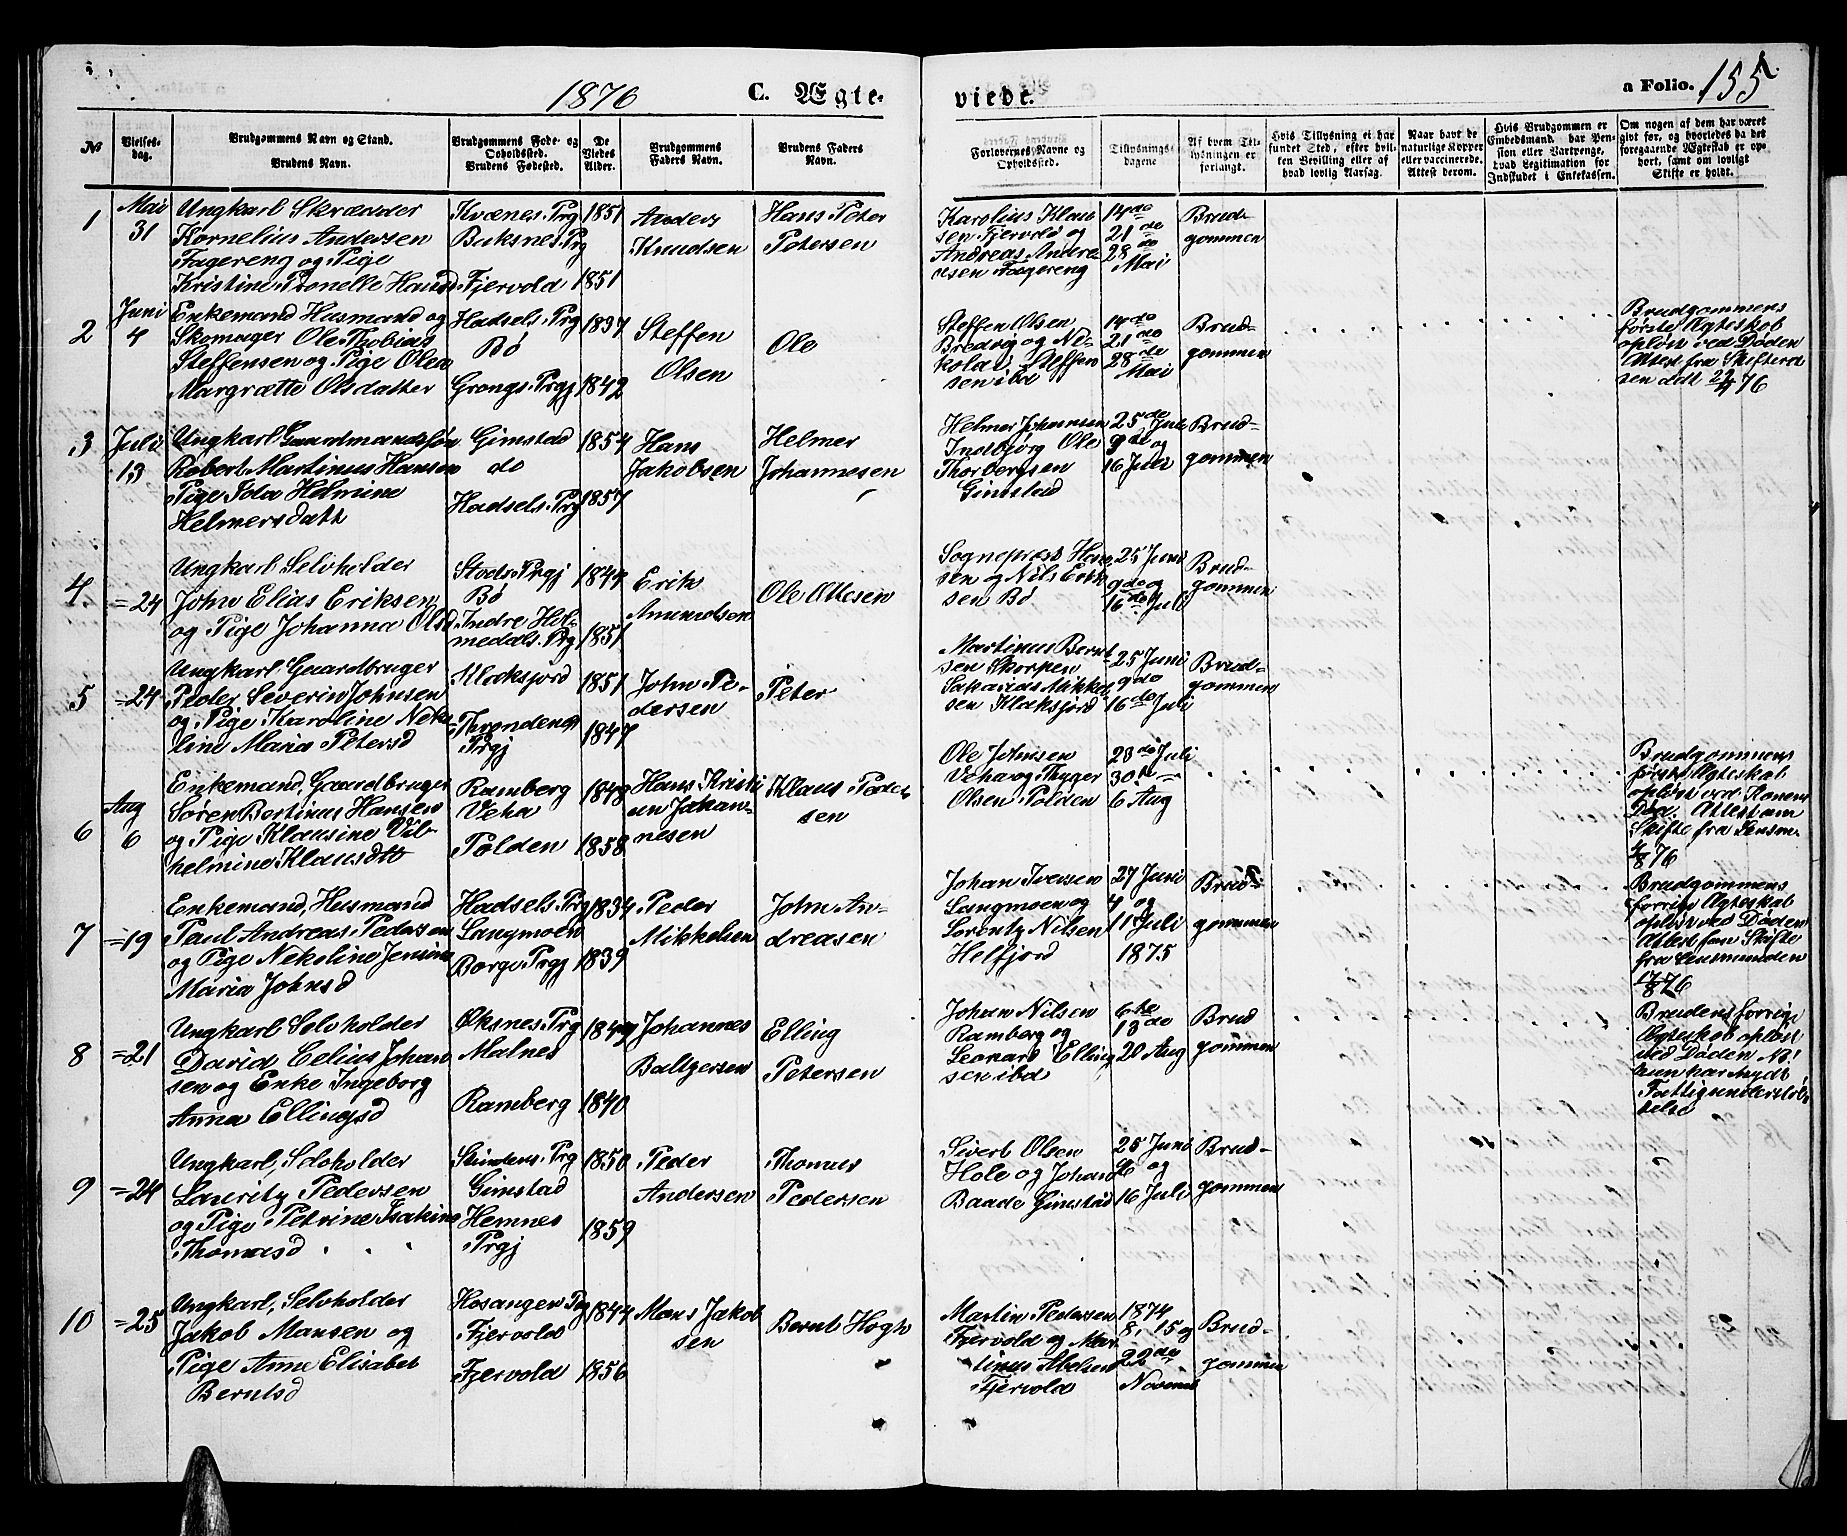 1876
C. Ægte-
viede.
a Folio. 155
№
Vielses-
dag.
Brudgommens Navn og Stand.
Brudens Navn.
Brudgommens Føde- og
Opholdssted.
Brudens Fødested.
De
Viedes
Alder.
Brudgommens
Faders Navn.
Brudens Faders
Navn.
Forlovernes Navne og
Opholdssted.
Tillysnings-
dagene
Af hvem Til-
lysningen er
forlangt.
Hvis Tillysning ei har
fundet Sted, efter hvil-
ken Bevilling eller af
hvad lovlig Aarsag.
Naar havt de
naturlige Kopper
eller vaccinerede.
Attest derom.
Hvis Brudgommen er
Embedsmand, har Pen-
sion eller Vartpenge,
hvad Legitimation for
Indskudet i Enkekassen.
Om nogen af dem har været
gift før, og hvorledes da det
foregaaende Ægteskab er op-
hørt, samt om lovligt
Skifte er holdt.
1
Mai
31
Ungkarl Skrædder
Kornelius Andersen
Fagereng og Pige
Kristine Pronelle Hansd
Kvænes Prg
Buksnes Prg
Fjervold
1851
1851
Anders
Knudsen
Hans Peter
Petersen
Karolius Klau
sen Fjervold og
Andreas Andre-
esen Fagereng
14de
21de
28de
Mai
Brud-
gommen
2
Juni
4
Enkemand Husmand og
Skomager Ole Thobias
Steffensen og Pige Olea
Margrætte Olsdatter
Hadsels Prg
Bø
Grongs Prgj
1837
1842
Steffen
Olsen
Ole
Steffen Olsen
Bredvig og Ni-
kolai Steffen
sen ibd
14de
21de
28de
Mai
Brud-
gommen
Brudgommens
første Ægteskab
opløst ved Døden
Attest fra Skifteret
sen ddt 22/4 76
3
Juli
13
Ungkarl Gaardmandssøn
Robert Martinus Hansen
Pige Ida Helmine
Helmersdatt
Gimstad
do
Hadsels Prg
1854
1857
Hans
Jakobsen
Helmer
Johannesen
Helmer Johansen
Indbjørg Ole
Thorbergsen
Gimstad
25de Juni
9de og
16 Juli
Brud-
gommen
4
=24
Ungkarl Selvholder
John Elias Eriksen
og Pige Johanna Olsd
Stods Prgj
Bø
Indre Hol-
medals Prg
1844
1851
Erik
Amundsen
Ole Ottesen
Sogneprest Han
sen og Nils Erik
sen Bø
25 Juni
9de og
16de Juli
Brud-
gommen
5
=24
Ungkarl Gaardbruger
Peder Severin Johnsen
og Pige Karoline Niko
line Maria Petersd
Klaksjord
Throndenes
Prgj
1851
1847
John Pe-
dersen
Peter
Martinus Bernt
sen Skorpen
Sakarias Mikkel
sen Klaksjord
25 Juni
9de
16de Juli
Brud-
gommen
6
Aug
6
Enkemand, Gaardbruger
Søren Bertinus Hansen
og Pige Klausine Vil-
helmine Klausdtt
Ramberg
Veha
Polden
1848
1858
Hans Kristi
an Johan-
nesen
Klaus Peder
sen
Ole Johnsen
Veha og Thyger
Olsen Polden
23de Juli
30te
6 Aug
Brudgommens
første Ægteskab
opløst ved Konens
Død. Attest om
Skifte fra Lensm.
4/8 76
7
=19
Enkemand, Husmand
Paul Andreas Pedersen
og Pige Nekoline Jensine
Maria Johnsd
Hadsels Prg
Langmoen
Borge Prgj
1834
1839
Peder
Mikkelsen
John An-
dreasen
Johan Iversen
Langmoen og
Lorentz Nilsen
Helfjord
27 Juni
4 og
11 Juli
1875
Brud-
gommen
Brudgommens
forrige Ægteskab
opløst ved Døden
Attest fra Skifte
fra Lensmanden
17/8 76
8
=21
Ungkarl Selvholder
David Celius Johan
sen og Enke Ingeborg
Anna Ellingsd
Øksnes Prg
Malnes
Ramberg
1840
Johannes
Baltzersen
Elling
Petersen
Johan Nilsen
Ramberg og
Leonard Elling
sen ibd
6te
13de
20 Aug
Brud
gommen
Brudens forrige
Ægteskab opløst
ved Døden
hun har nydt
Fattigunderstøt-
telse
9
=24
Ungkarl, Selvholder
Lauritz Pedersen
og Pige Petrine Isakine
Thomasd
Gimstad
Hemnes
Prgj
1850
1859
Peder
Andersen
Thomas
Pedersen
Sivert Olsen
Hole og Johan
Baade Gimstad
25 Juni
og
16 Juli
Brud-
gommen
10
=25
Ungkarl, Selvholder
Jakob Monsen og
Pige Anne Elisabet
Berntsd
Hosanger Prg
Fjervold
Fjervold
1844
1856
Mons Jakob
sen
Bernt Hogh
Martin Pedersen
Fjervold og Mar
tinus Abelsen
Fjervold
1874
8, 15 og
22de
Novemb
Brud-
gommen